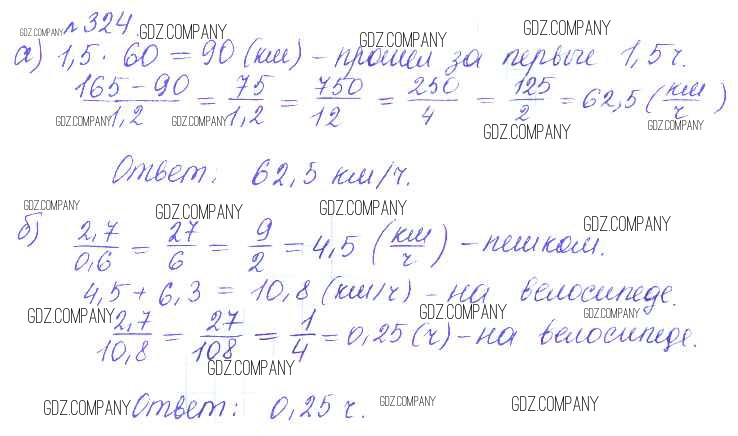 № 324. GDZ.COMPANY GDZ.COMPANY GDZ.COMPANY GDZ.COMPANY
а) 1,5 · 60 = 90 (км) – прошел за первые 1,5 ч.
(165 – 90)/1,2 = 75/1,2 = 750/12 = 250/4 = 125/2 = 62,5 (км/ч)
GDZ.COMPANY GDZ.COMPANY GDZ.COMPANY GDZ.COMPANY
Ответ: 62,5 км/ч.
GDZ.COMPANY GDZ.COMPANY GDZ.COMPANY GDZ.COMPANY
б) 2,7/0,6 = 27/6 = 9/2 = 4,5 (км/ч) – пешком.
4,5 + 6,3 = 10,8 (км/ч) – на велосипеде.
GDZ.COMPANY GDZ.COMPANY GDZ.COMPANY
2,7/10,8 = 27/108 = 1/4 = 0,25 (ч) – на велосипеде.
GDZ.COMPANY
GDZ.COMPANY Ответ: 0,25 ч. GDZ.COMPANY GDZ.COMPANY